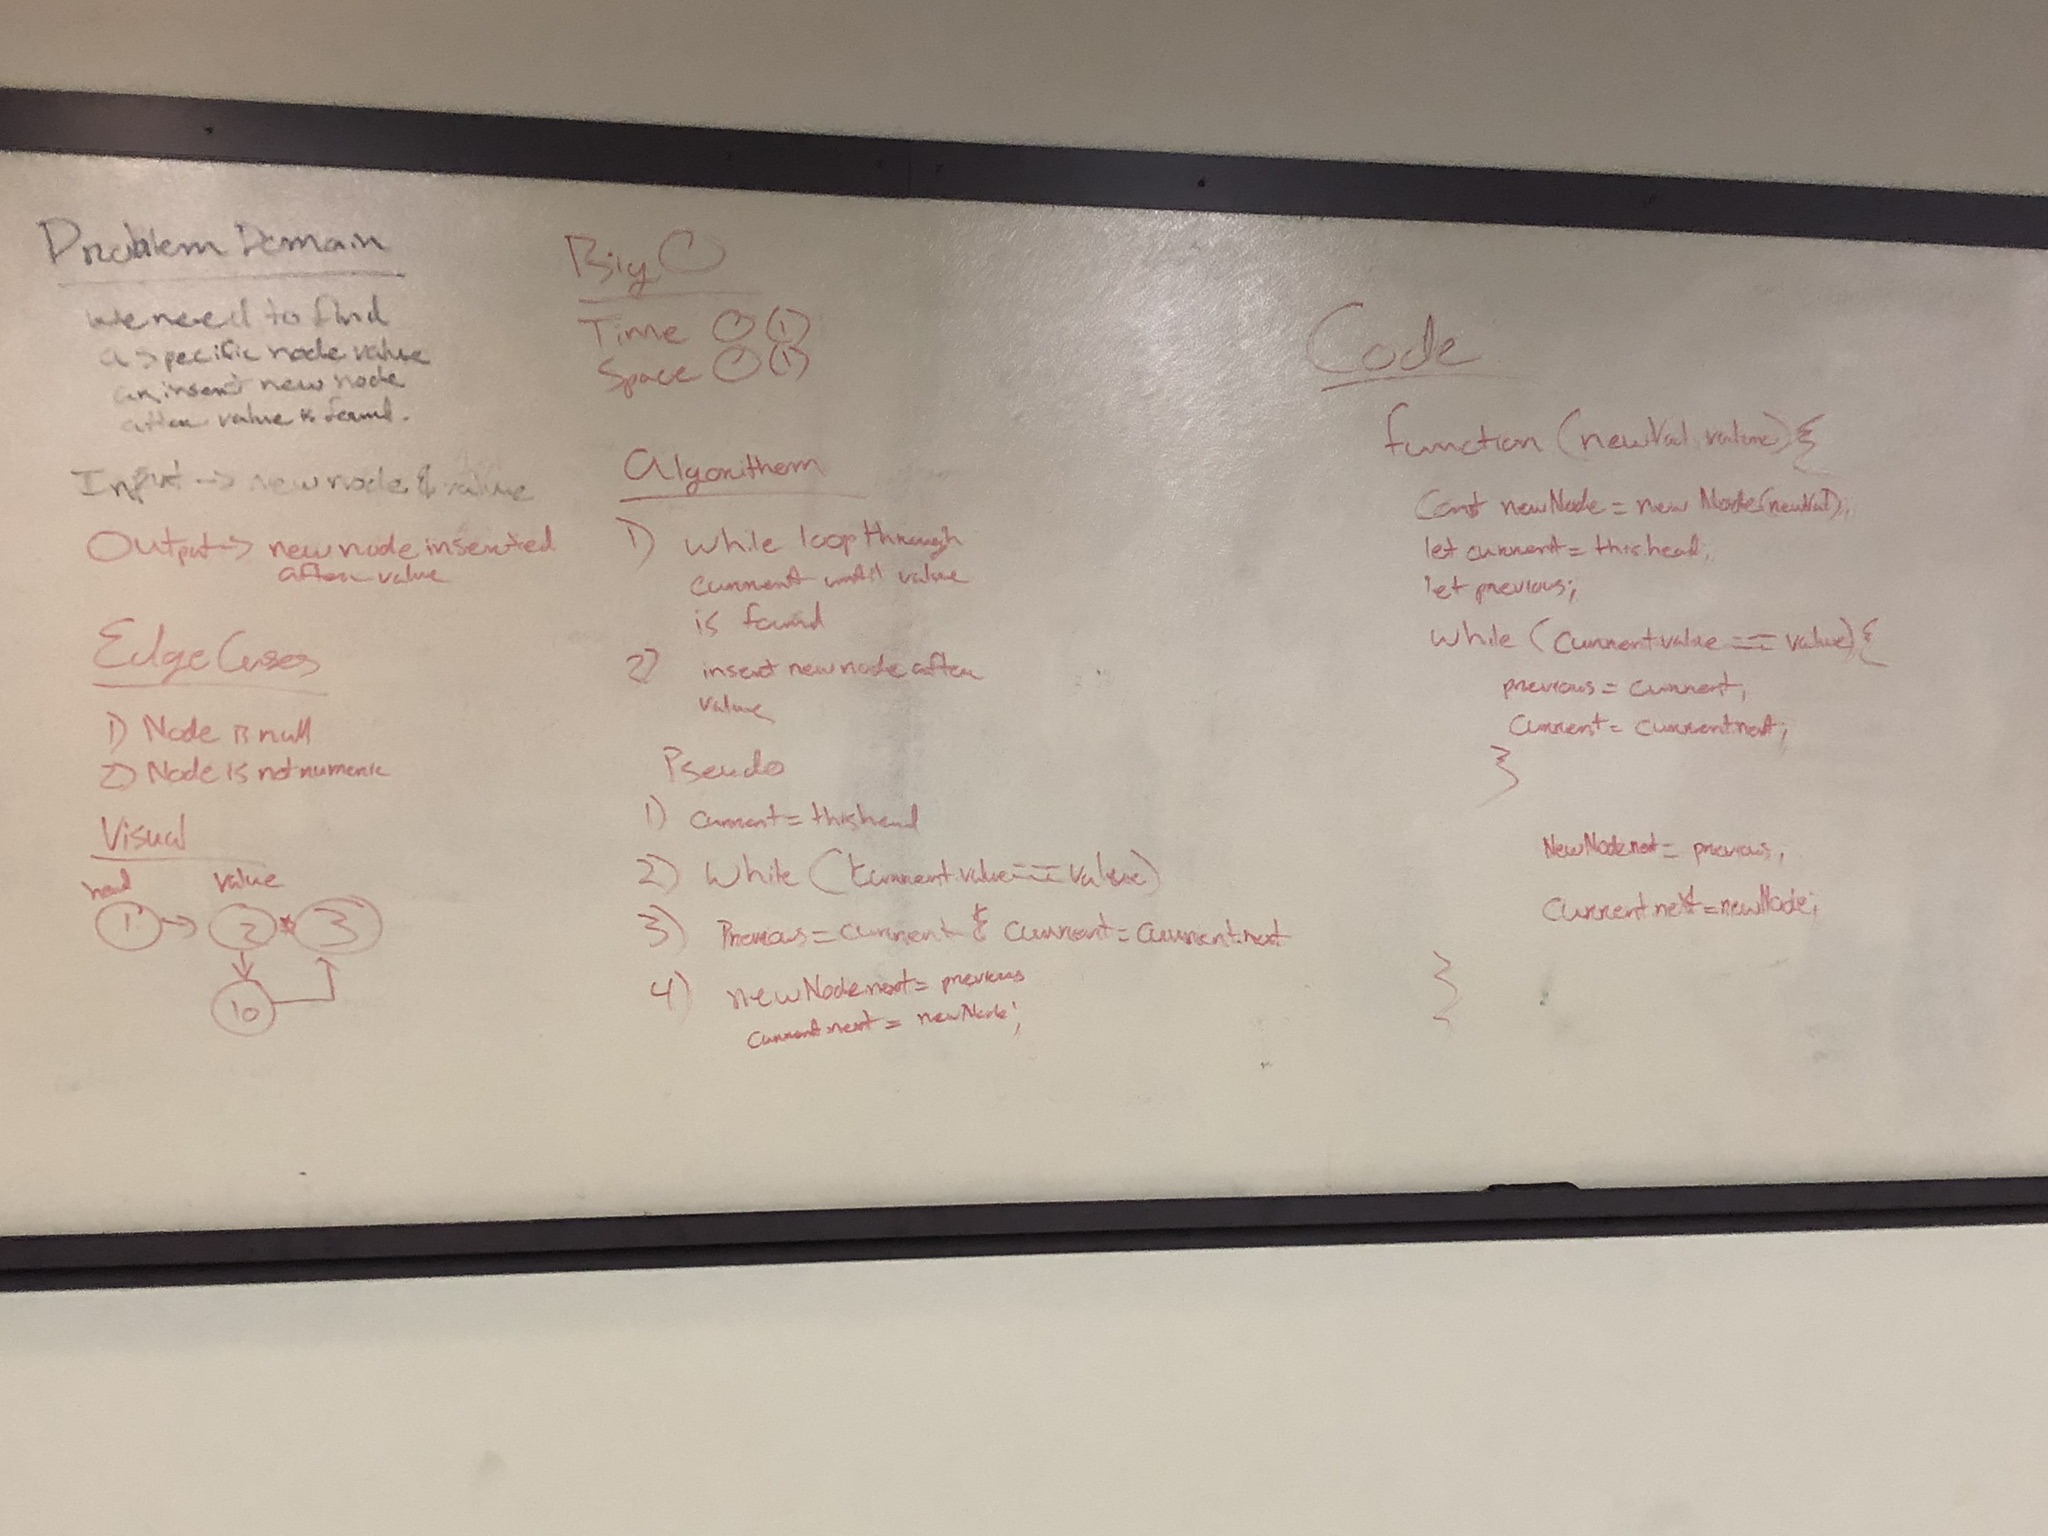 Problem Domain
we need to find
a specific node value
an insert new node
after value is found.
Input -> new node & value
Output -> new node inserted
after value
Edge Cases
1) Node is null
2) Node is not numeric
Visual
head value
1 -> 2 3
10
Big O
Time O(1)
Space O(1)
Algorithem
1) while loop through
current until value
is found
2) insert new node after
value
Pseudo
1) current = this.head
2) While (current.value === value)
3) Previous = current & current = current.next
4) newNode.next = previous
current.next = newNode;
Code
function (newVal, value) {
Const newNode = new Node(newVal);
let current = this.head;
let previous;
while (current.value === value) {
previous = current;
current = current.next;
}
NewNode.next = previous;
Current.next = newNode;
}